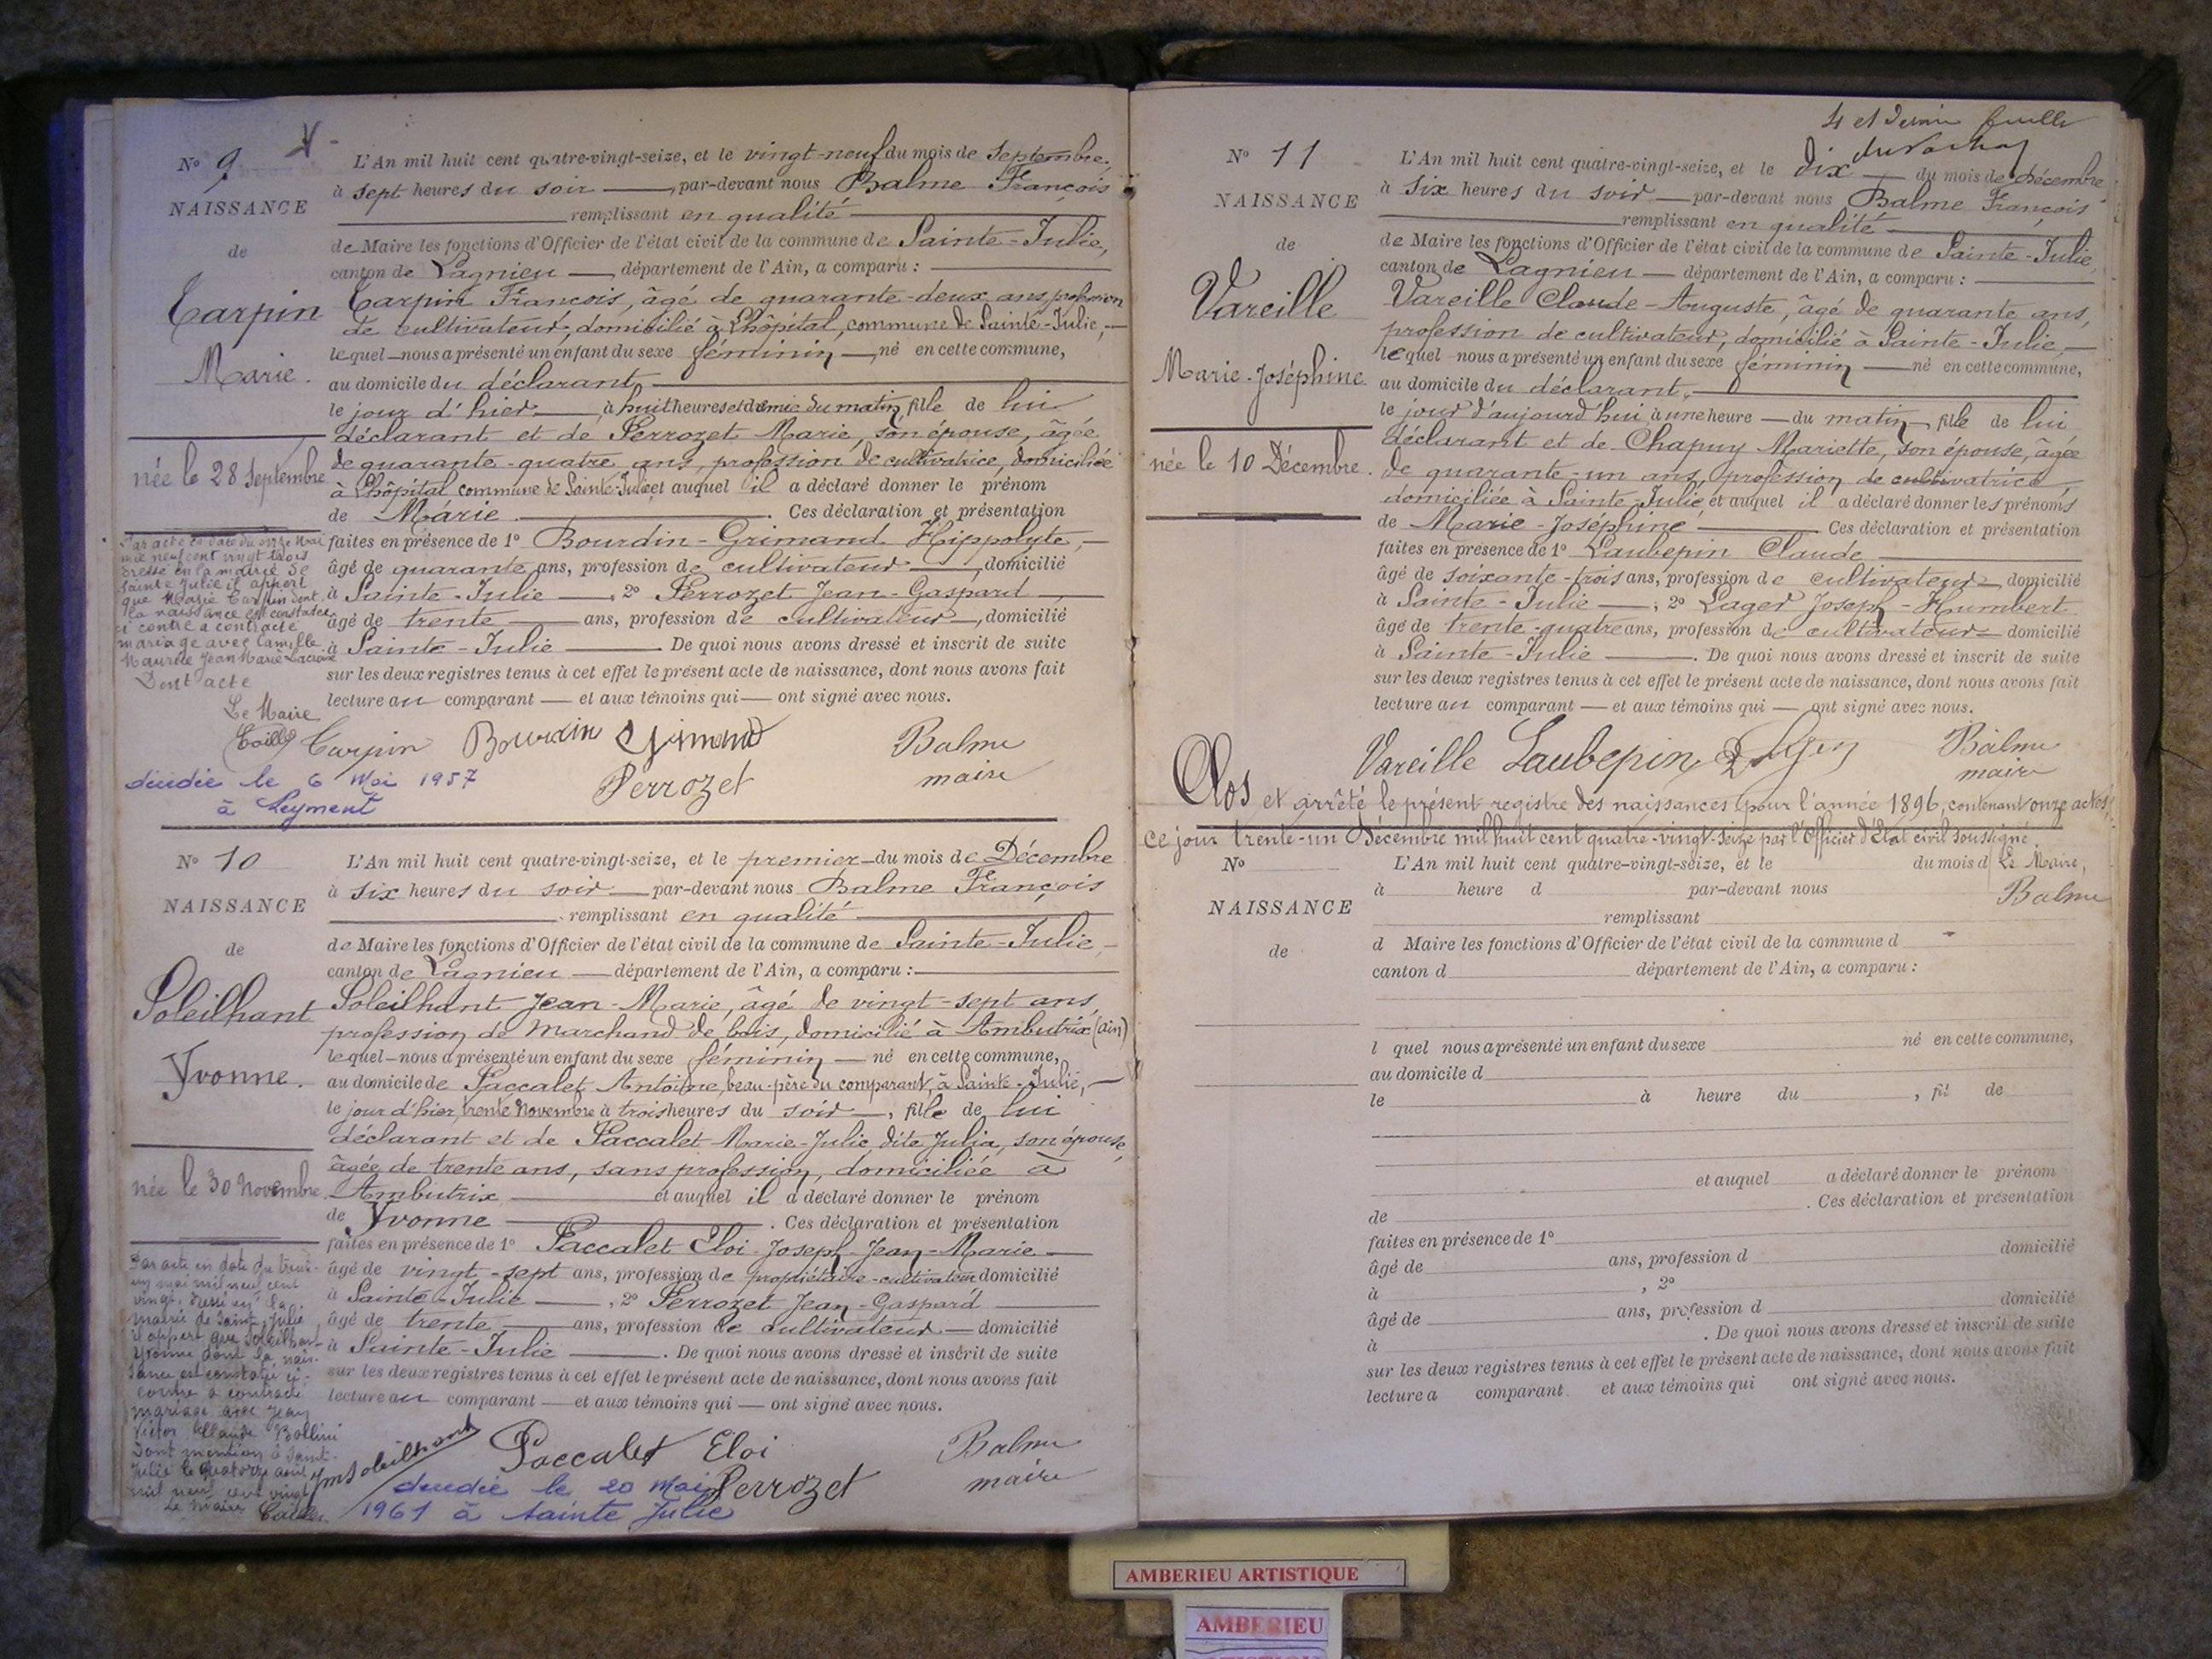 N° 9
NAISSANCE
de
Carpin
Marie.
née le 28 Septembre
Par acte en date du onze Mai
mil neuf cent vingt trois
dressé en la mairie de
Sainte Julie il appert
que Marie Carpin dont
la naissance est constatée
ci contre a contracté
mariage avec Camille
Maurice Jean Marie Lacroix
Dont acte
Le Maire
L'An mil huit cent quatre-vingt-seize, et le vingt-neuf du mois de Septembre,
à sept heures du soir par-devant nous Balme François
remplissant en qualité
de Maire les fonctions d'Officier de l'état civil de la commune de Sainte-Julie,
canton de Lagnieu département de l'Ain, a comparu :
Carpin François, âgé de quarante-deux ans, profession
de cultivateur, domicilié à Lhôpital, commune de Sainte-Julie,
lequel nous a présenté un enfant du sexe féminin, né en cette commune,
au domicile du déclarant
le jour d'hier à huit heures et demie du matin, fille de lui
déclarant et de Perrozet Marie, son épouse, âgée
de quarante-quatre ans, profession de cultivatrice, domiciliée
à Lhôpital commune de Sainte-Julie et auquel il a déclaré donner le prénom
de Marie. Ces déclaration et présentation
faites en présence de 1° Bourdin-Grimand Hippolyte,
âgé de quarante ans, profession de cultivateur, domicilié
à Sainte-Julie, 2° Perrozet Jean-Gaspard
âgé de trente ans, profession de cultivateur, domicilié
à Sainte-Julie. De quoi nous avons dressé et inscrit de suite
sur les deux registres tenus à cet effet le présent acte de naissance, dont nous avons fait
lecture au comparant et aux témoins qui ont signé avec nous.
Carpin Bourdin Grimand Balme
Perrozet maire
décédée le 6 Mai 1957
à Leyment
N° 10
NAISSANCE
de
Soleilhant
Yvonne.
née le 30 Novembre.
Par acte en date du trente
un mai mil neuf cent
vingt, dressé en la
mairie de Sainte Julie
il appert que Soleilhant
Yvonne dont la nais-
sance est constatée ci-
contre a contracté
mariage avec Jean
Victor Claude Bollini
Dont mention à Sainte
Julie le quatorze août
mil neuf cent vingt
Le Maire
L'An mil huit cent quatre-vingt-seize, et le premier du mois de Décembre
à six heures du soir par-devant nous Balme François
remplissant en qualité
de Maire les fonctions d'Officier de l'état civil de la commune de Sainte-Julie,
canton de Lagnieu département de l'Ain, a comparu :
Soleilhant Jean-Marie, âgé de vingt-sept ans,
profession de Marchand de bois, domicilié à Ambutrix (Ain)
lequel nous a présenté un enfant du sexe féminin né en cette commune,
au domicile de Paccalet Antoine, beau-père du comparant, à Sainte-Julie,
le jour d'hier, trente Novembre à trois heures du soir, fille de lui
déclarant et de Paccalet Marie-Julie, dite Julia, son épouse,
âgée de trente ans, sans profession, domiciliée à
Ambutrix et auquel il a déclaré donner le prénom
de Yvonne. Ces déclaration et présentation
faites en présence de 1° Paccalet Eloi-Joseph-Jean-Marie
âgé de vingt-sept ans, profession de propriétaire-cultivateur domicilié
à Sainte-Julie, 2° Perrozet Jean-Gaspard
âgé de trente ans, profession de cultivateur domicilié
à Sainte-Julie. De quoi nous avons dressé et inscrit de suite
sur les deux registres tenus à cet effet le présent acte de naissance, dont nous avons fait
lecture au comparant et aux témoins qui ont signé avec nous.
Jm Soleilhant Paccalet Eloi Balme
Perrozet maire
décédée le 20 Mai
1961 à Sainte Julie
4 et dernier feuille
N° 11
NAISSANCE
de
Vareille
Marie-Joséphine
née le 10 Décembre.
L'An mil huit cent quatre-vingt-seize, et le dix du mois de Décembre
à six heures du soir par-devant nous Balme François
remplissant en qualité
de Maire les fonctions d'Officier de l'état civil de la commune de Sainte-Julie,
canton de Lagnieu département de l'Ain, a comparu :
Vareille Claude-Auguste, âgé de quarante ans,
profession de cultivateur, domicilié à Sainte-Julie,
lequel nous a présenté un enfant du sexe féminin né en cette commune,
au domicile du déclarant,
le jour d'aujourd'hui à une heure du matin, fille de lui
déclarant et de Chapuy Mariette, son épouse, âgée
de quarante-un ans, profession de cultivatrice
domiciliée à Sainte-Julie et auquel il a déclaré donner les prénoms
de Marie-Joséphine Ces déclaration et présentation
faites en présence de 1° Laubepin Claude
âgé de soixante-trois ans, profession de cultivateur domicilié
à Sainte-Julie; 2° Lager Joseph-Humbert
âgé de trente-quatre ans, profession de cultivateur domicilié
à Sainte-Julie. De quoi nous avons dressé et inscrit de suite
sur les deux registres tenus à cet effet le présent acte de naissance, dont nous avons fait
lecture au comparant et aux témoins qui ont signé avec nous.
Vareille Laubepin Balme
maire
Clos et arrêté le présent registre des naissances pour l'année 1896, contenant onze actes,
ce jour trente-un Décembre mil huit cent quatre-vingt-seize par l'Officier d'Etat civil soussigné.
Le Maire,
Balme
N°
NAISSANCE
de
L'An mil huit cent quatre-vingt-seize, et le du mois d
à heure d par-devant nous
remplissant
d Maire les fonctions d'Officier de l'état civil de la commune d
canton d département de l'Ain, a comparu :
l quel nous a présenté un enfant du sexe né en cette commune,
au domicile d
le à heure du , fil de
et auquel a déclaré donner le prénom
de . Ces déclaration et présentation
faites en présence de 1°
âgé de ans, profession d domicilié
à , 2°
âgé de ans, profession d domicilié
à . De quoi nous avons dressé et inscrit de suite
sur les deux registres tenus à cet effet le présent acte de naissance, dont nous avons fait
lecture a comparant et aux témoins qui ont signé avec nous.
AMBERIEU ARTISTIQUE
AMBERIEU